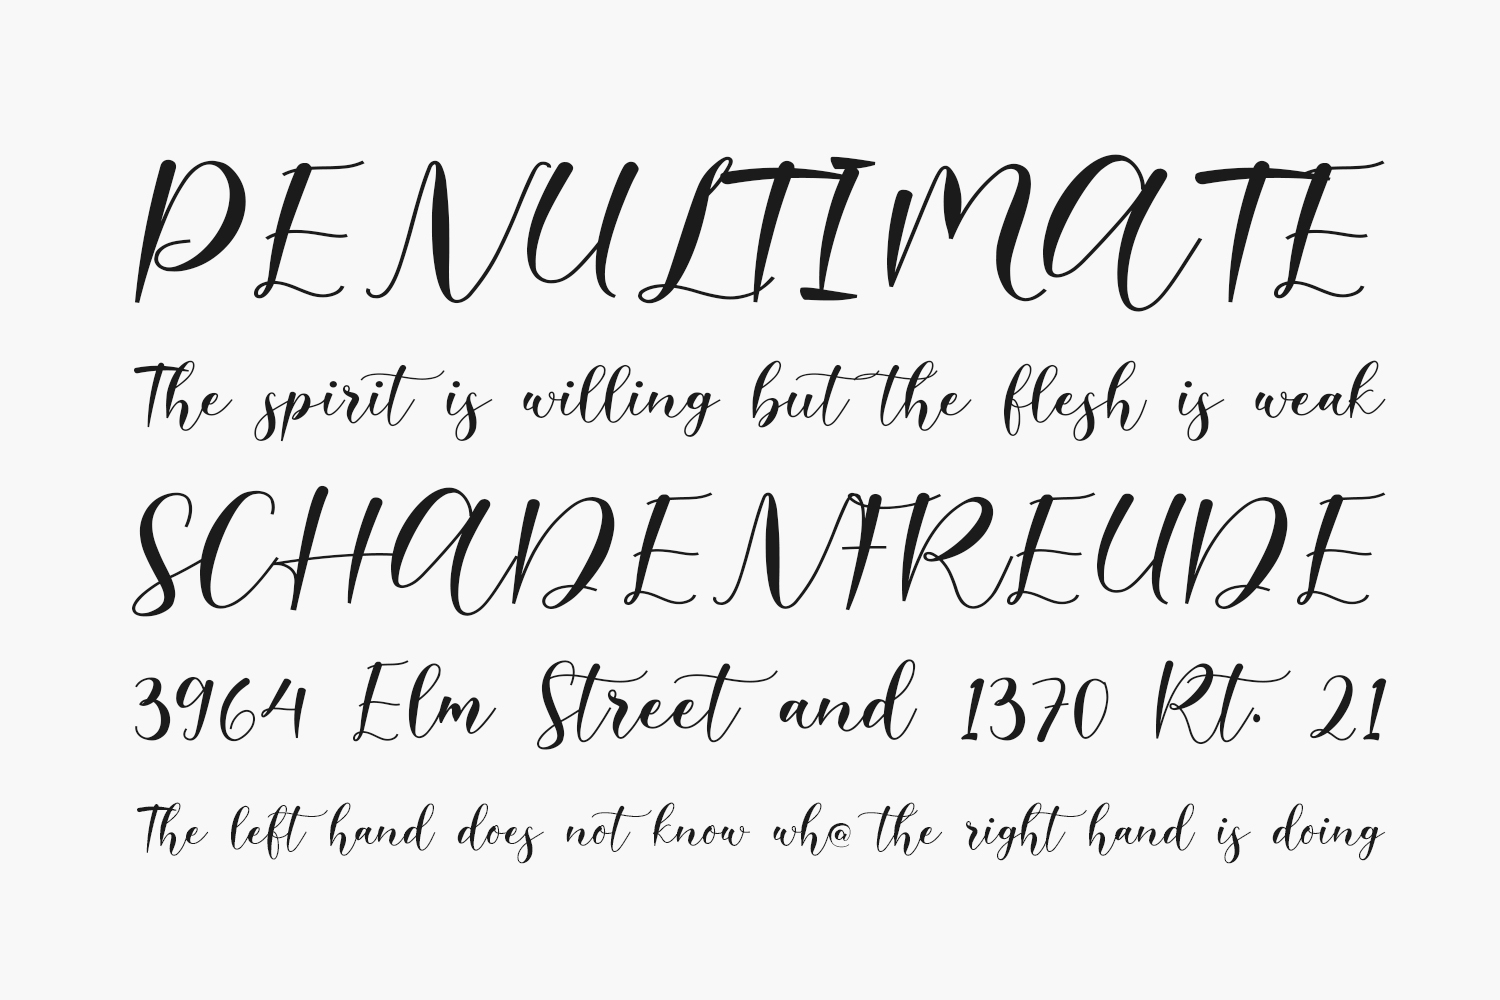 PENULTIMATE
The spirit is willing but the flesh is weak
SCHADENFREUDE
3964 Elm Street and 1370 Rt. 21
The left hand does not know wh@ the right hand is doing